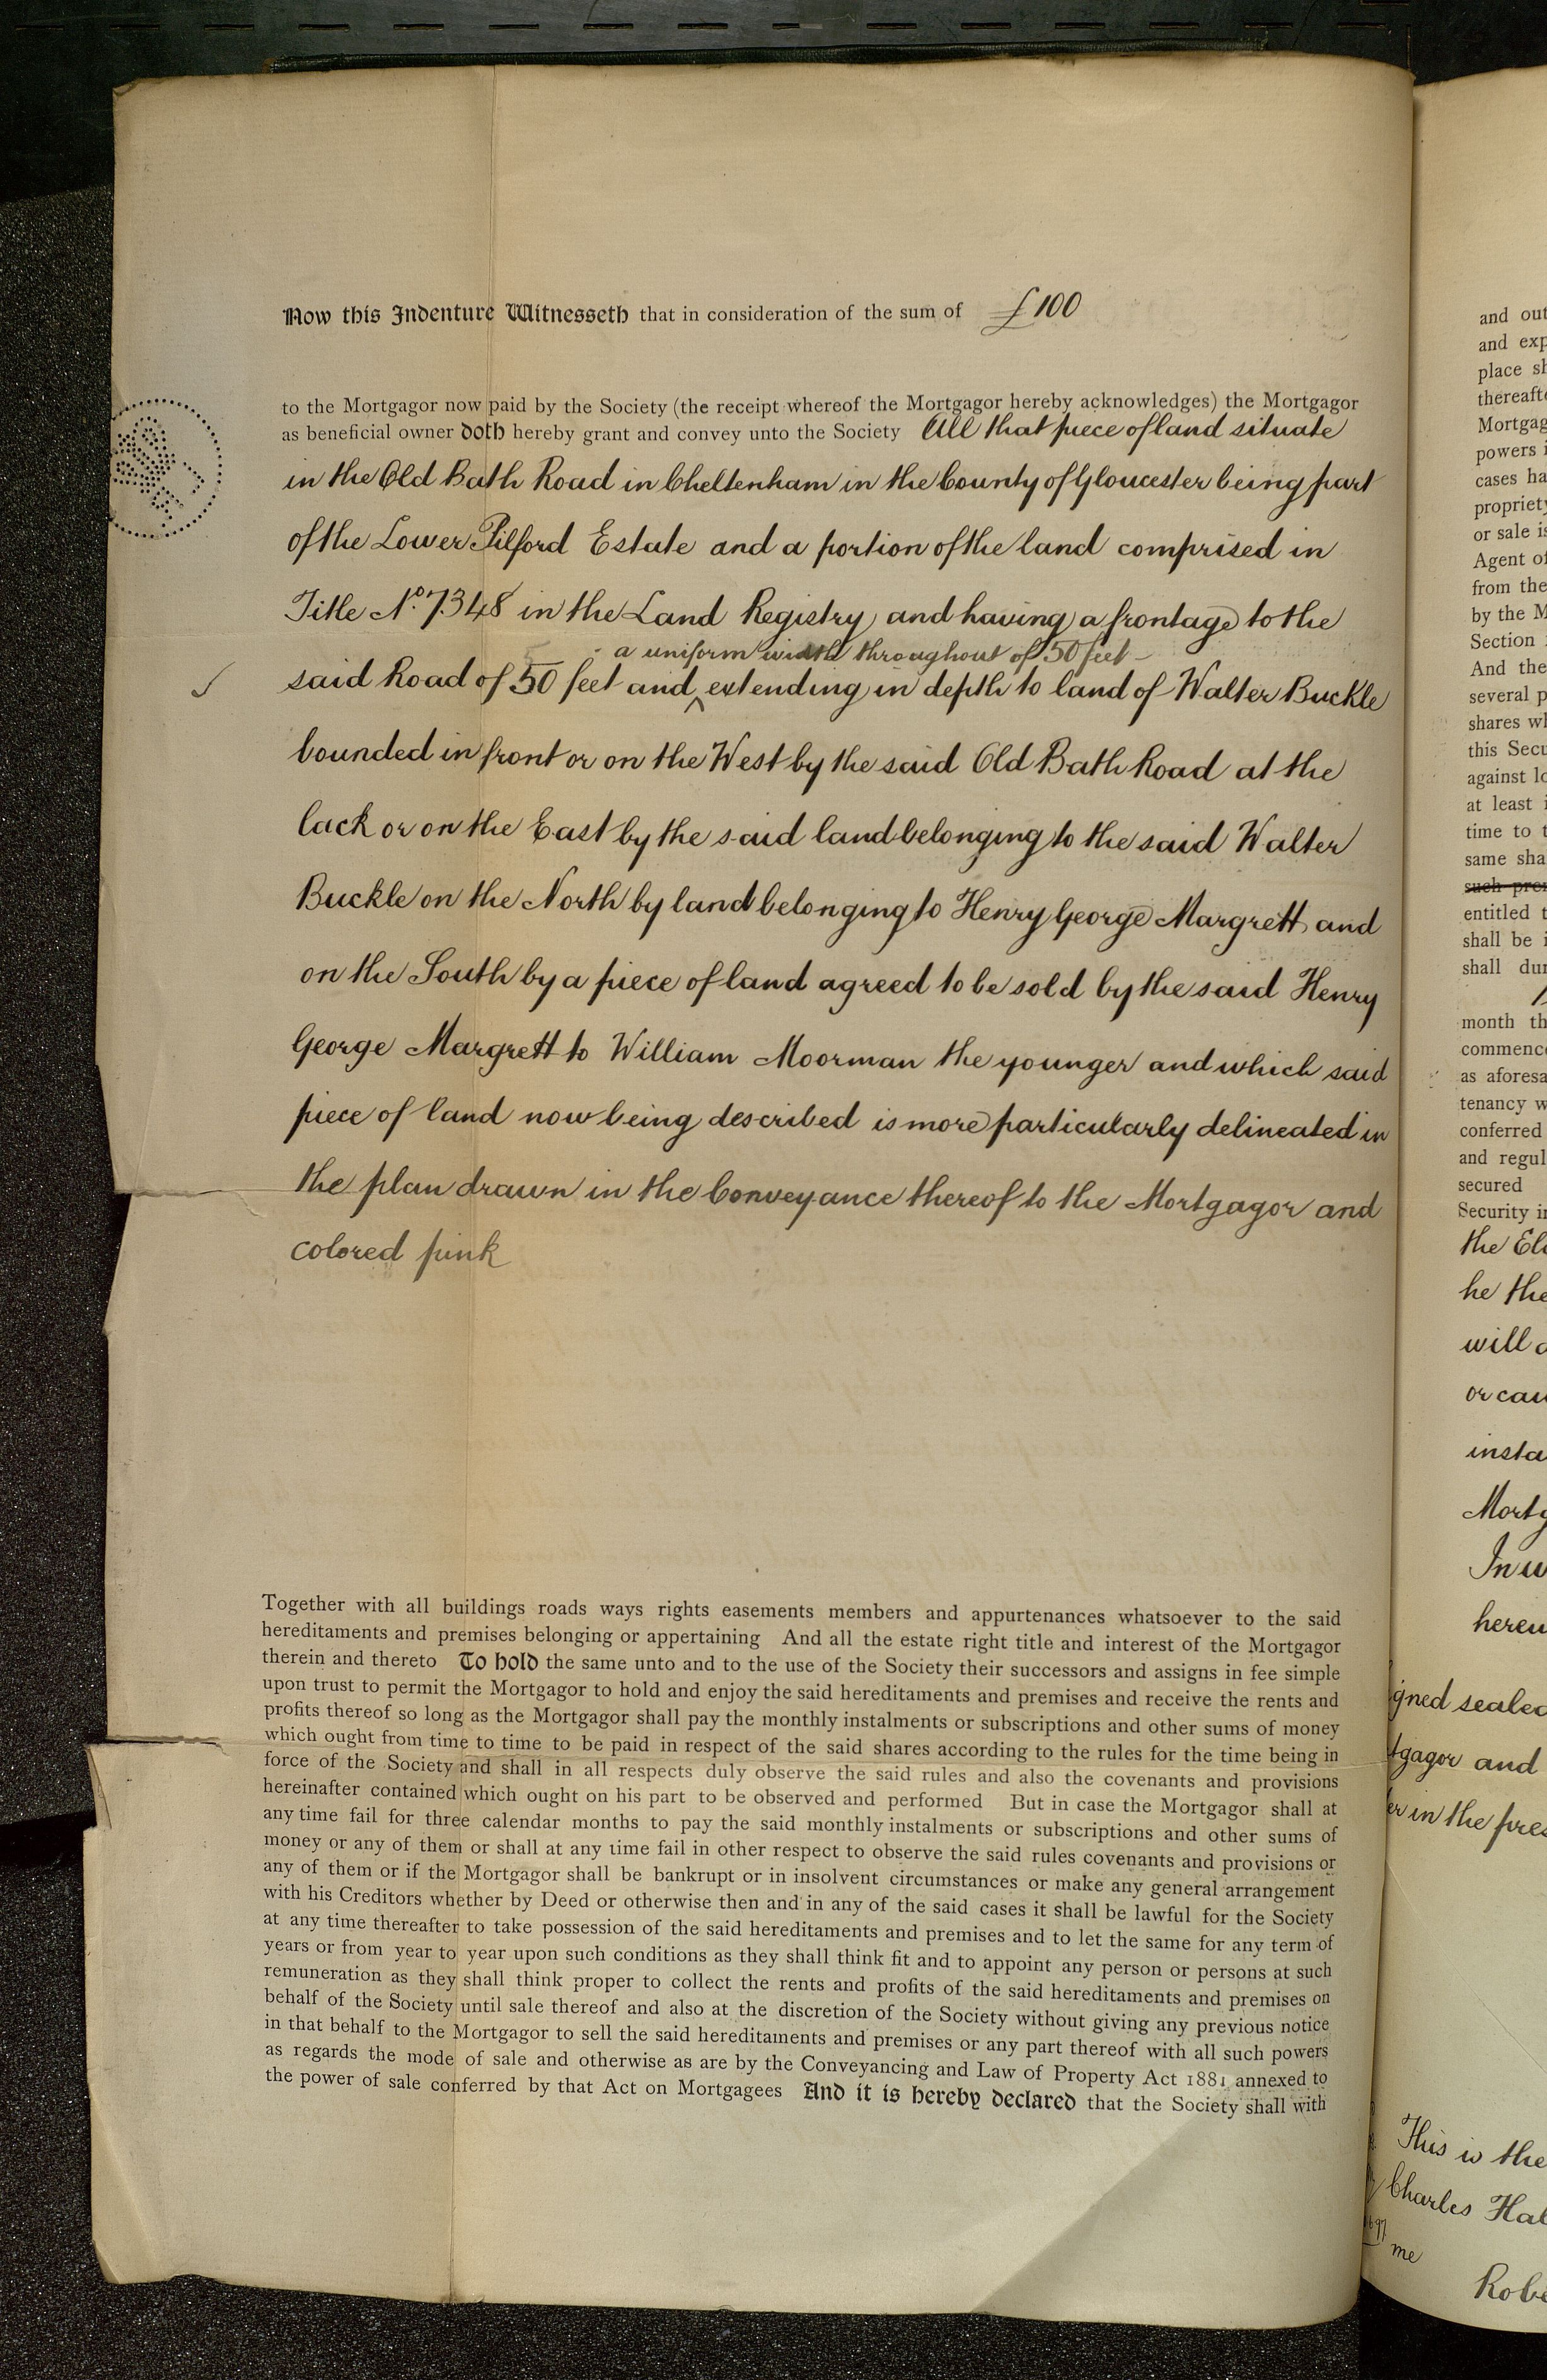 Now this Indenture Witnesseth that in consideration of the sum of £100
to the Mortgagor now paid by the Society (the receipt whereof the Mortgagor hereby acknowledges) the Mortgagor
as beneficial owner doth hereby grant and convey unto the Society All that piece of land situate
in the Old Bath Road in Cheltenham in the County of Gloucester being part
of the Lower Pilford Estate and a portion of the land comprised in
Title No. 7348 in the Land Registry and having a frontage to the
a uniform width throughout of 50 feet
said Road of 50 feet and extending in depth to land of Walter Buckle
bounded in front or on the West by the said Old Bath Road at the
back or on the East by the said land belonging to the said Walter
Buckle on the North by land belonging to Henry George Margrett and
on the South by a piece of land agreed to be sold by the said Henry
George Margrett to William Moorman the younger and which said
piece of land now being described is more particularly delineated in
the plan drawn in the Conveyance thereof to the Mortgagor and
colored pink
Together with all buildings roads ways rights easements members and appurtenances whatsoever to the said
hereditaments and premises belonging or appertaining And all the estate right title and interest of the Mortgagor
therein and thereto To hold the same unto and to the use of the Society their successors and assigns in fee simple
upon trust to permit the Mortgagor to hold and enjoy the said hereditaments and premises and receive the rents and
profits thereof so long as the Mortgagor shall pay the monthly instalments or subscriptions and other sums of money
which ought from time to time to be paid in respect of the said shares according to the rules for the time being in
force of the Society and shall in all respects duly observe the said rules and also the covenants and provisions
hereinafter contained which ought on his part to be observed and performed But in case the Mortgagor shall at
any time fail for three calendar months to pay the said monthly instalments or subscriptions and other sums of
money or any of them or shall at any time fail in other respect to observe the said rules covenants and provisions or
any of them or if the Mortgagor shall be bankrupt or in insolvent circumstances or make any general arrangement
with his Creditors whether by Deed or otherwise then and in any of the said cases it shall be lawful for the Society
at any time thereafter to take possession of the said hereditaments and premises and to let the same for any term of
years or from year to year upon such conditions as they shall think fit and to appoint any person or persons at such
remuneration as they shall think proper to collect the rents and profits of the said hereditaments and premises on
behalf of the Society until sale thereof and also at the discretion of the Society without giving any previous notice
in that behalf to the Mortgagor to sell the said hereditaments and premises or any part thereof with all such powers
as regards the mode of sale and otherwise as are by the Conveyancing and Law of Property Act 1881 annexed to
the power of sale conferred by that Act on Mortgagees And it is hereby declared that the Society shall with
and out
and
place
Mortgag
powers
cases
or sale
Agent
from the
by the
Section
And the
several
shares
this
against
at least
time to
same
such
entitled
shall be
shall
month
as
tenancy
conferred
and
secured
Security
the
he the
will
or
In
sealed
and
in the
This is the
Charles
me